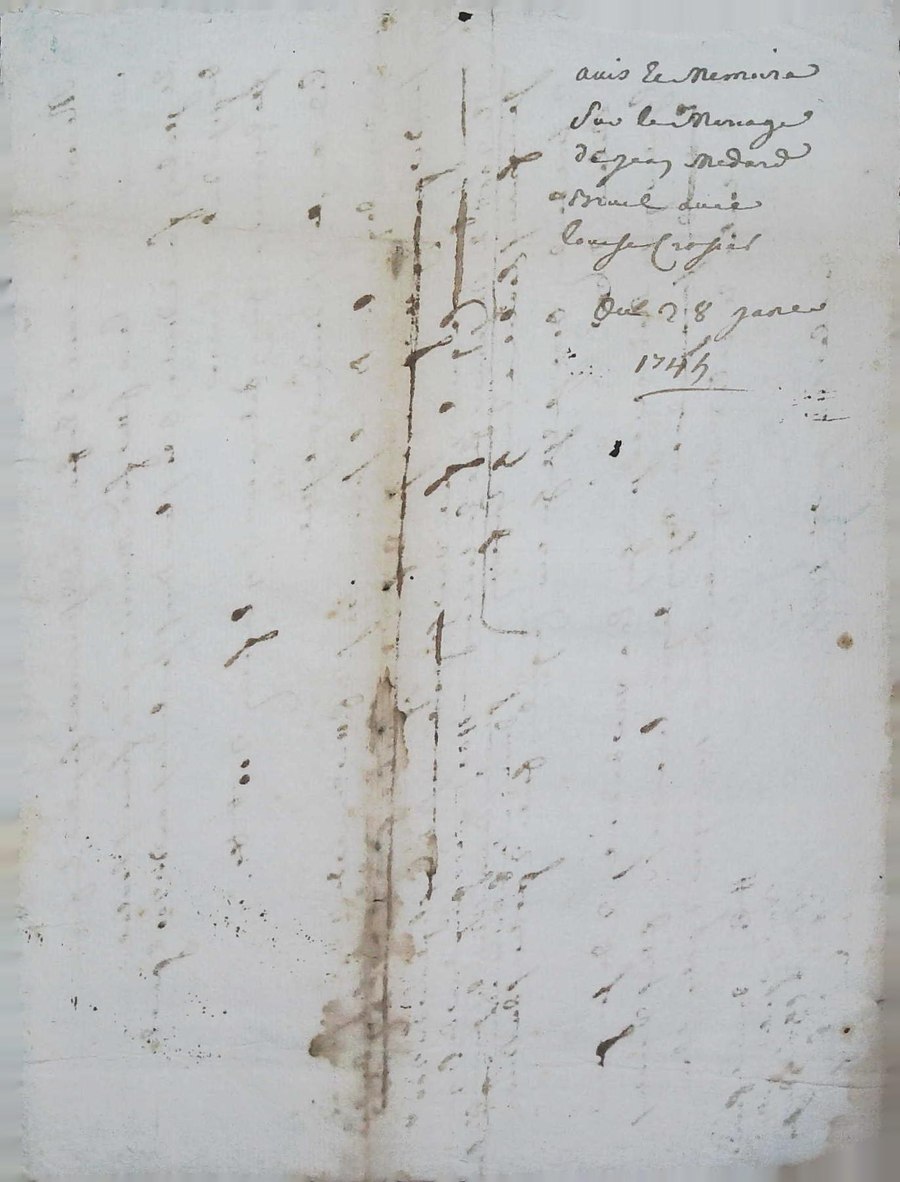 avis Et Memoire
Sur le Menage
de jean Medard
Bruel avec
louise Crosier
Du 28 janer
174